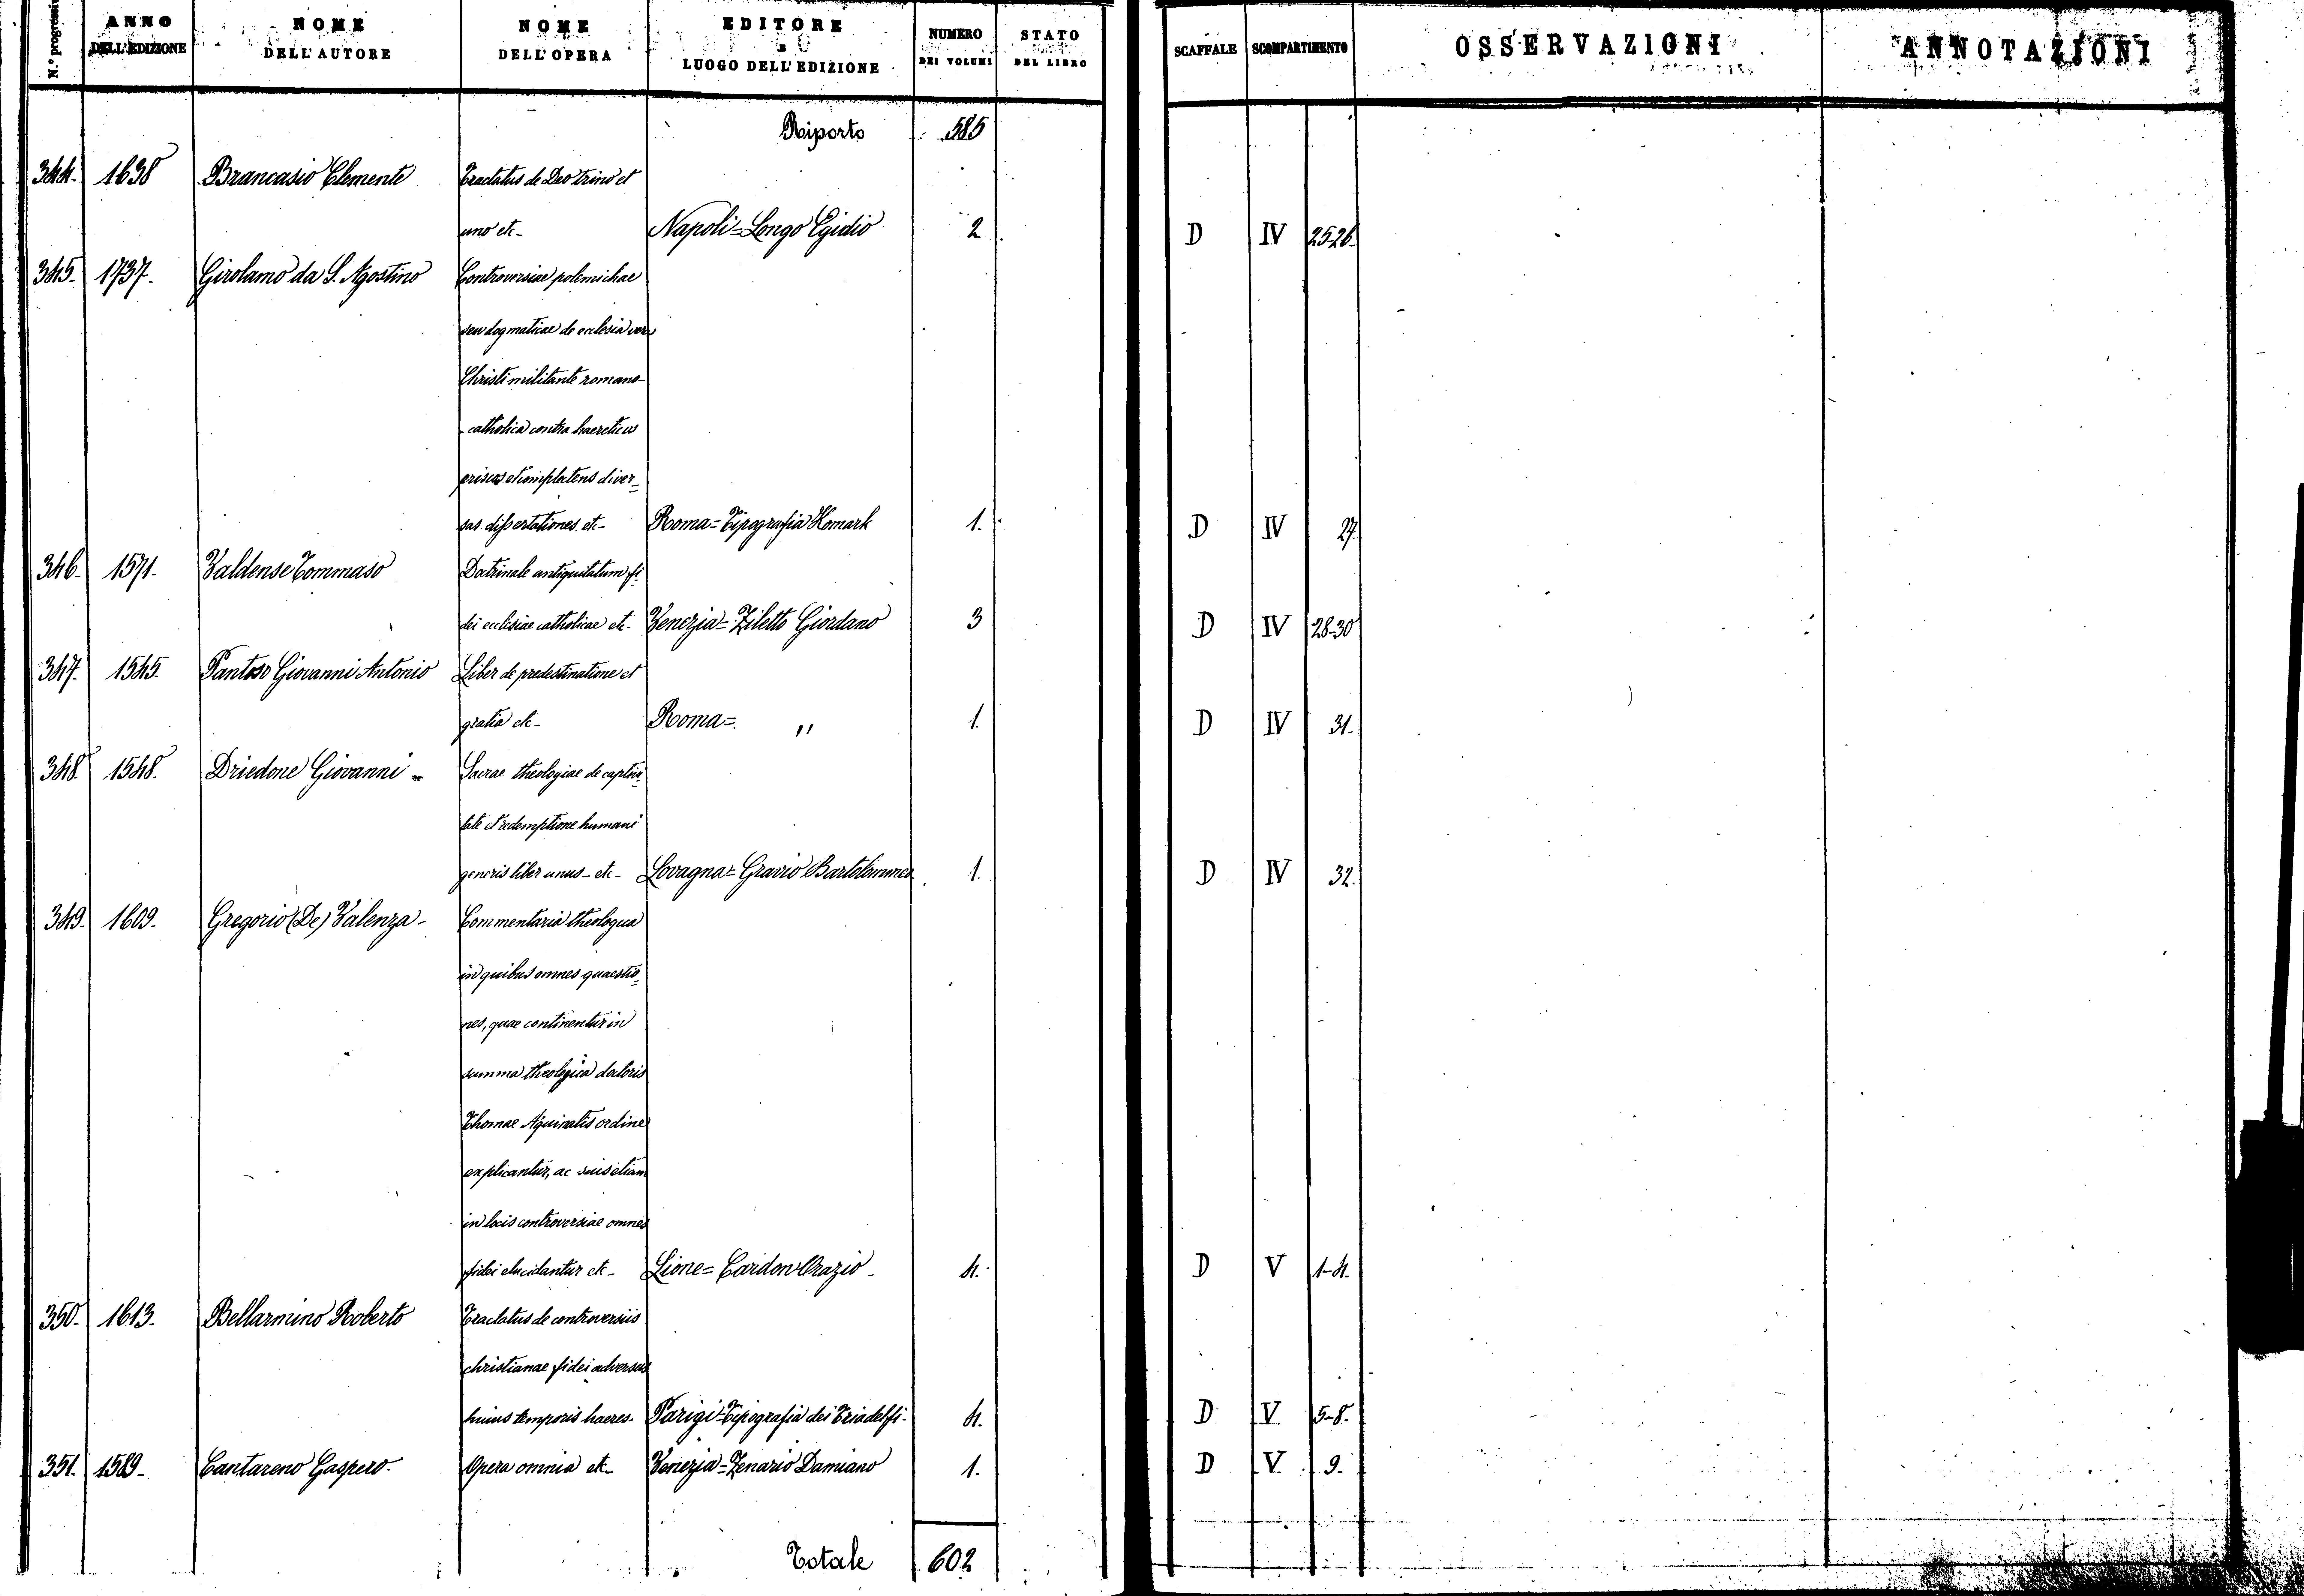 N.° progressivo | ANNO DELL'EDIZIONE | NOME DELL'AUTORE | NOME DELL'OPERA | EDITORE E LUOGO DELL'EDIZIONE | NUMERO DEI VOLUMI | STATO DEL LIBRO | SCAFFALE | SCOMPARTIMENTO | OSSERVAZIONI | ANNOTAZIONI
Riporto 585
344. 1638 Brancasio Clemente Tractatus de Deo trino et
uno etc- Napoli=Longo Egidio 2 D IV 25-26.
345. 1737. Girolamo da S. Agostino Controversiae polemichae
seu dogmaticae de ecclesia vera
Christi militante romano-
catholica contra haereticos
priscos et implectens diver-
sas dissertationes etc- Roma=Tipografia Komark 1. D IV 27.
346. 1571. Valdense Tommaso Doctrinale antiquitatum fi-
dei ecclesiae catholicae etc- Venezia=Ziletto Giordano 3 D IV 28-30
347. 1545. Pantoso Giovanni Antonio Liber de predestinatione et
gratia etc- Roma= " 1. D IV 31.
348. 1548. Driedone Giovanni- Sacrae theologiae de captivi-
tate et redemptione humani
generis liber unus-etc- Lovagna=Gravio Bartolommeo 1. D IV 32.
349. 1609. Gregorio (De) Valenza- Commentaria theologica
in quibus omnes quaestio-
nes, quae continentur in
summa theologica doctoris
Thomae Aquinatis ordine
explicantur, ac suis etiam
in locis controversiae omnes
fidei elucidantur etc- Lione=Cardon Orazio- 4. D V 1-4.
350. 1613. Bellarmino Roberto Tractatus de controversiis
christianae fidei adversus
huius temporis haeres. Parigi=Tipografia dei Triadelfi. 4. D V. 5-8.
351. 1589- Cantareno Gaspero. Opera omnia etc- Venezia=Zenario Damiano 1. D V. 9.
Totale 602